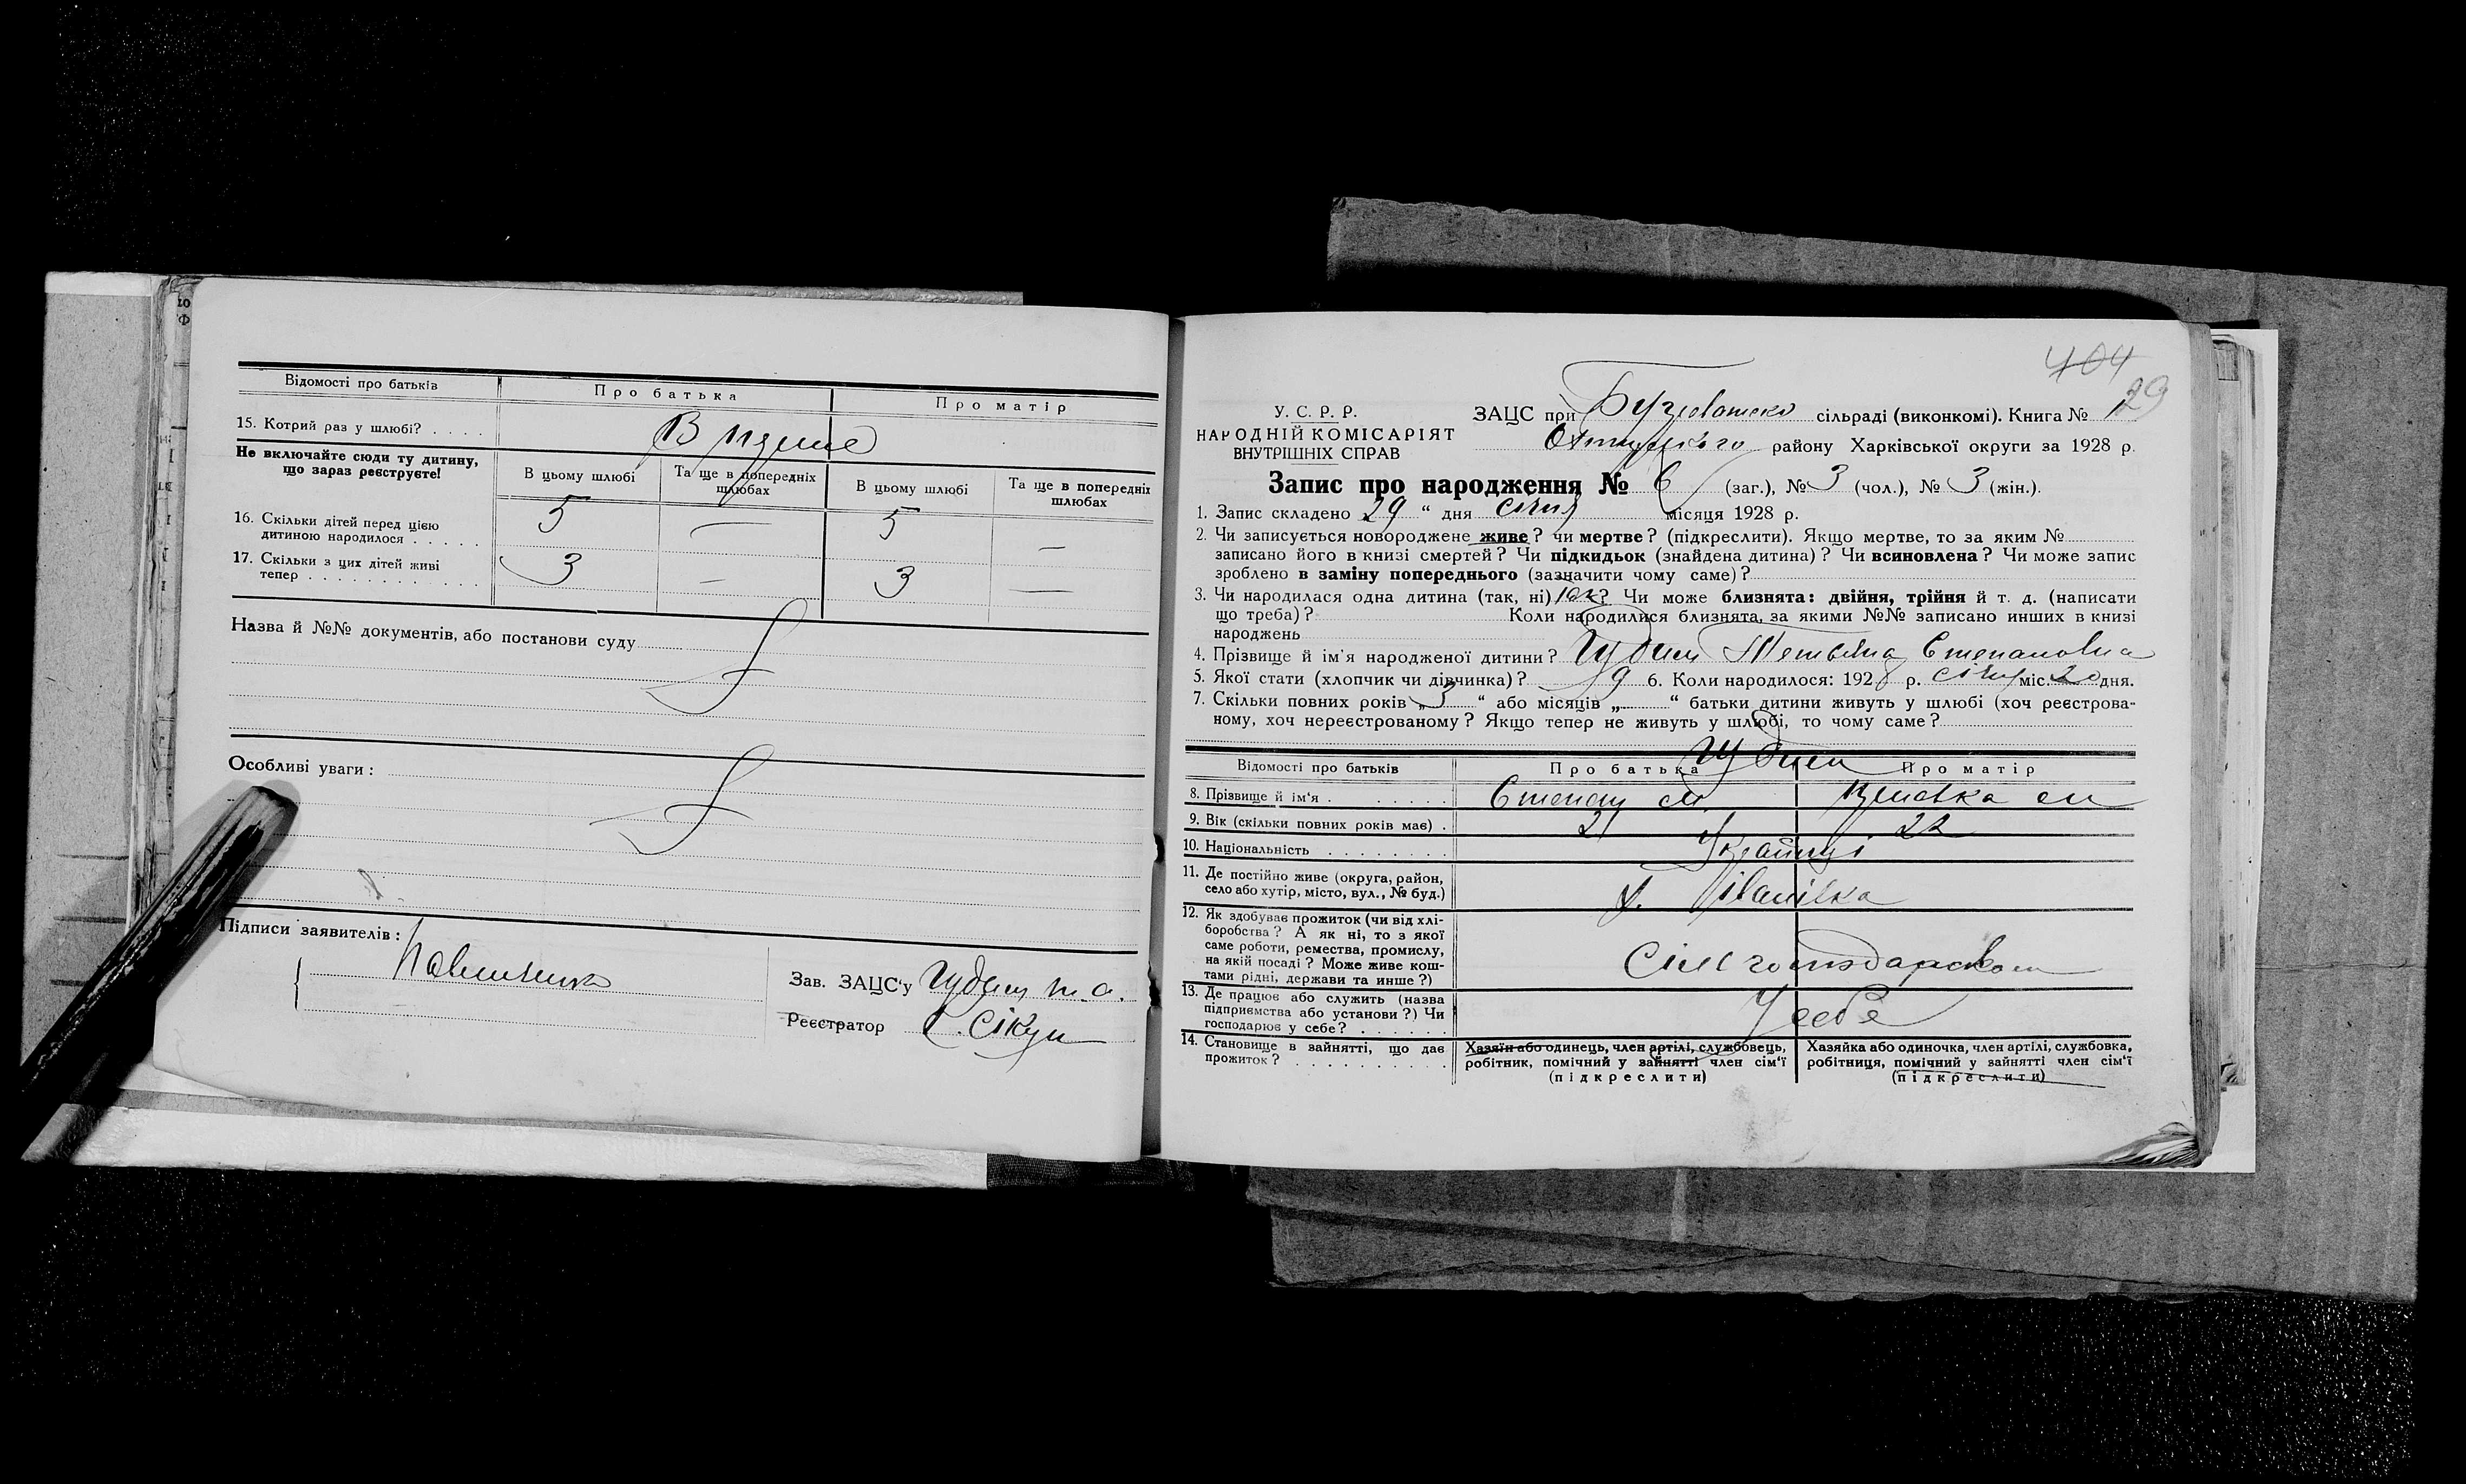 Відомості про батьків
Про батька
Про матір
15. Котрий раз у шлюбі? . . . .
В перше
Не включайте сюди ту дитину,
що зараз реєструєте!
В цьому шлюбі
Та ще в попередніх
шлюбах
В цьому шлюбі
Та ще в попередніх
шлюбах
16. Скільки дітей перед цією
дитиною народилося . . . . .
5 — 5 —
17. Скільки з цих дітей живі
тепер . . . . . . . . . . . . .
3 — 3 —
Назва й №№ документів, або постанови суду
Особливі уваги:
Підписи заявителів:
Зав. ЗАЦС'у
Реєстратор С. Сікун
404
29
У. С. Р. Р.
НАРОДНІЙ КОМІСАРІЯТ
ВНУТРІШНІХ СПРАВ
ЗАЦС при сільраді (виконкомі). Книга № 1
району Харківської округи за 1928 р.
Запис про народження № 6 (заг.), № 3 (чол.), № 3 (жін.).
1. Запис складено 29 “ дня січня місяця 1928 р.
2. Чи записується новороджене живе? чи мертве? (підкреслити). Якщо мертве, то за яким №
записано його в книзі смертей? Чи підкидьок (знайдена дитина)? Чи всиновлена? Чи може запис
зроблено в заміну попереднього (зазначити чому саме)?
3. Чи народилася одна дитина (так, ні) так? Чи може близнята: двійня, трійня й т. д. (написати
що треба)? Коли народилися близнята, за якими №№ записано инших в книзі
народжень
4. Прізвище й ім'я народженої дитини? Тетьяна Степановна
5. Якої стати (хлопчик чи дівчинка)? 6. Коли народилося: 1928 р. січня міс. 20 дня.
7. Скільки повних років „ 3 “ або місяців „ “ батьки дитини живуть у шлюбі (хоч реєстрова-
ному, хоч нереєстрованому? Якщо тепер не живуть у шлюбі, то чому саме?
Відомості про батьків
Про батька
Про матір
8. Прізвище й ім'я . . . . . . .
Степан
9. Вік (скільки повних років має) .
21 22
10. Національність . . . . . . . .
Українці
11. Де постійно живе (округа, район,
село або хутір, місто, вул., № буд.)
12. Як здобуває прожиток (чи від хлі-
боробства? А як ні, то з якої
саме роботи, ремества, промислу,
на якій посаді? Може живе кош-
тами рідні, держави та инше?)
13. Де працює або служить (назва
підприємства або установи?) Чи
господарює у себе? . . . . . .
У себе
14. Становище в зайнятті, що дає
прожиток? . . . . . . . . . .
Хазяїн або одинець, член артілі, службовець,
робітник, помічний у зайнятті член сім'ї
(підкреслити)
Хазяйка або одиночка, член артілі, службовка,
робітниця, помічний у зайнятті член сім'ї
(підкреслити)